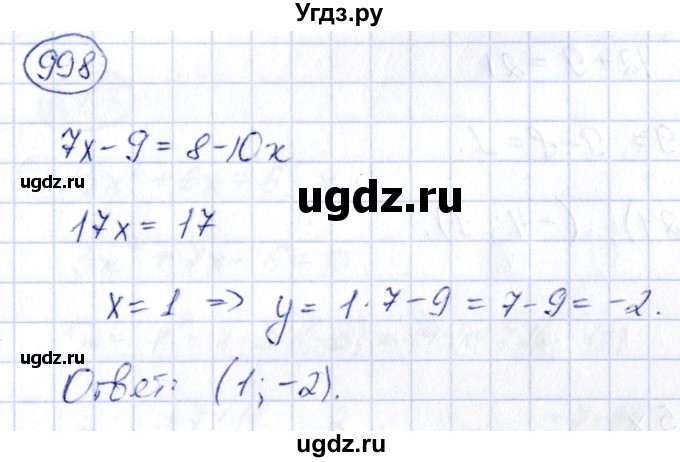 Угдз.ру
998
7x - 9 = 8 - 10x
ugdz.ru
ugdz.ru
ugdz.ru
17x = 17
x = 1 => y = 1 · 7 - 9 = 7 - 9 = -2.
ugdz.ru
ugdz.ru
Ответ: (1; -2).
ugdz.ru